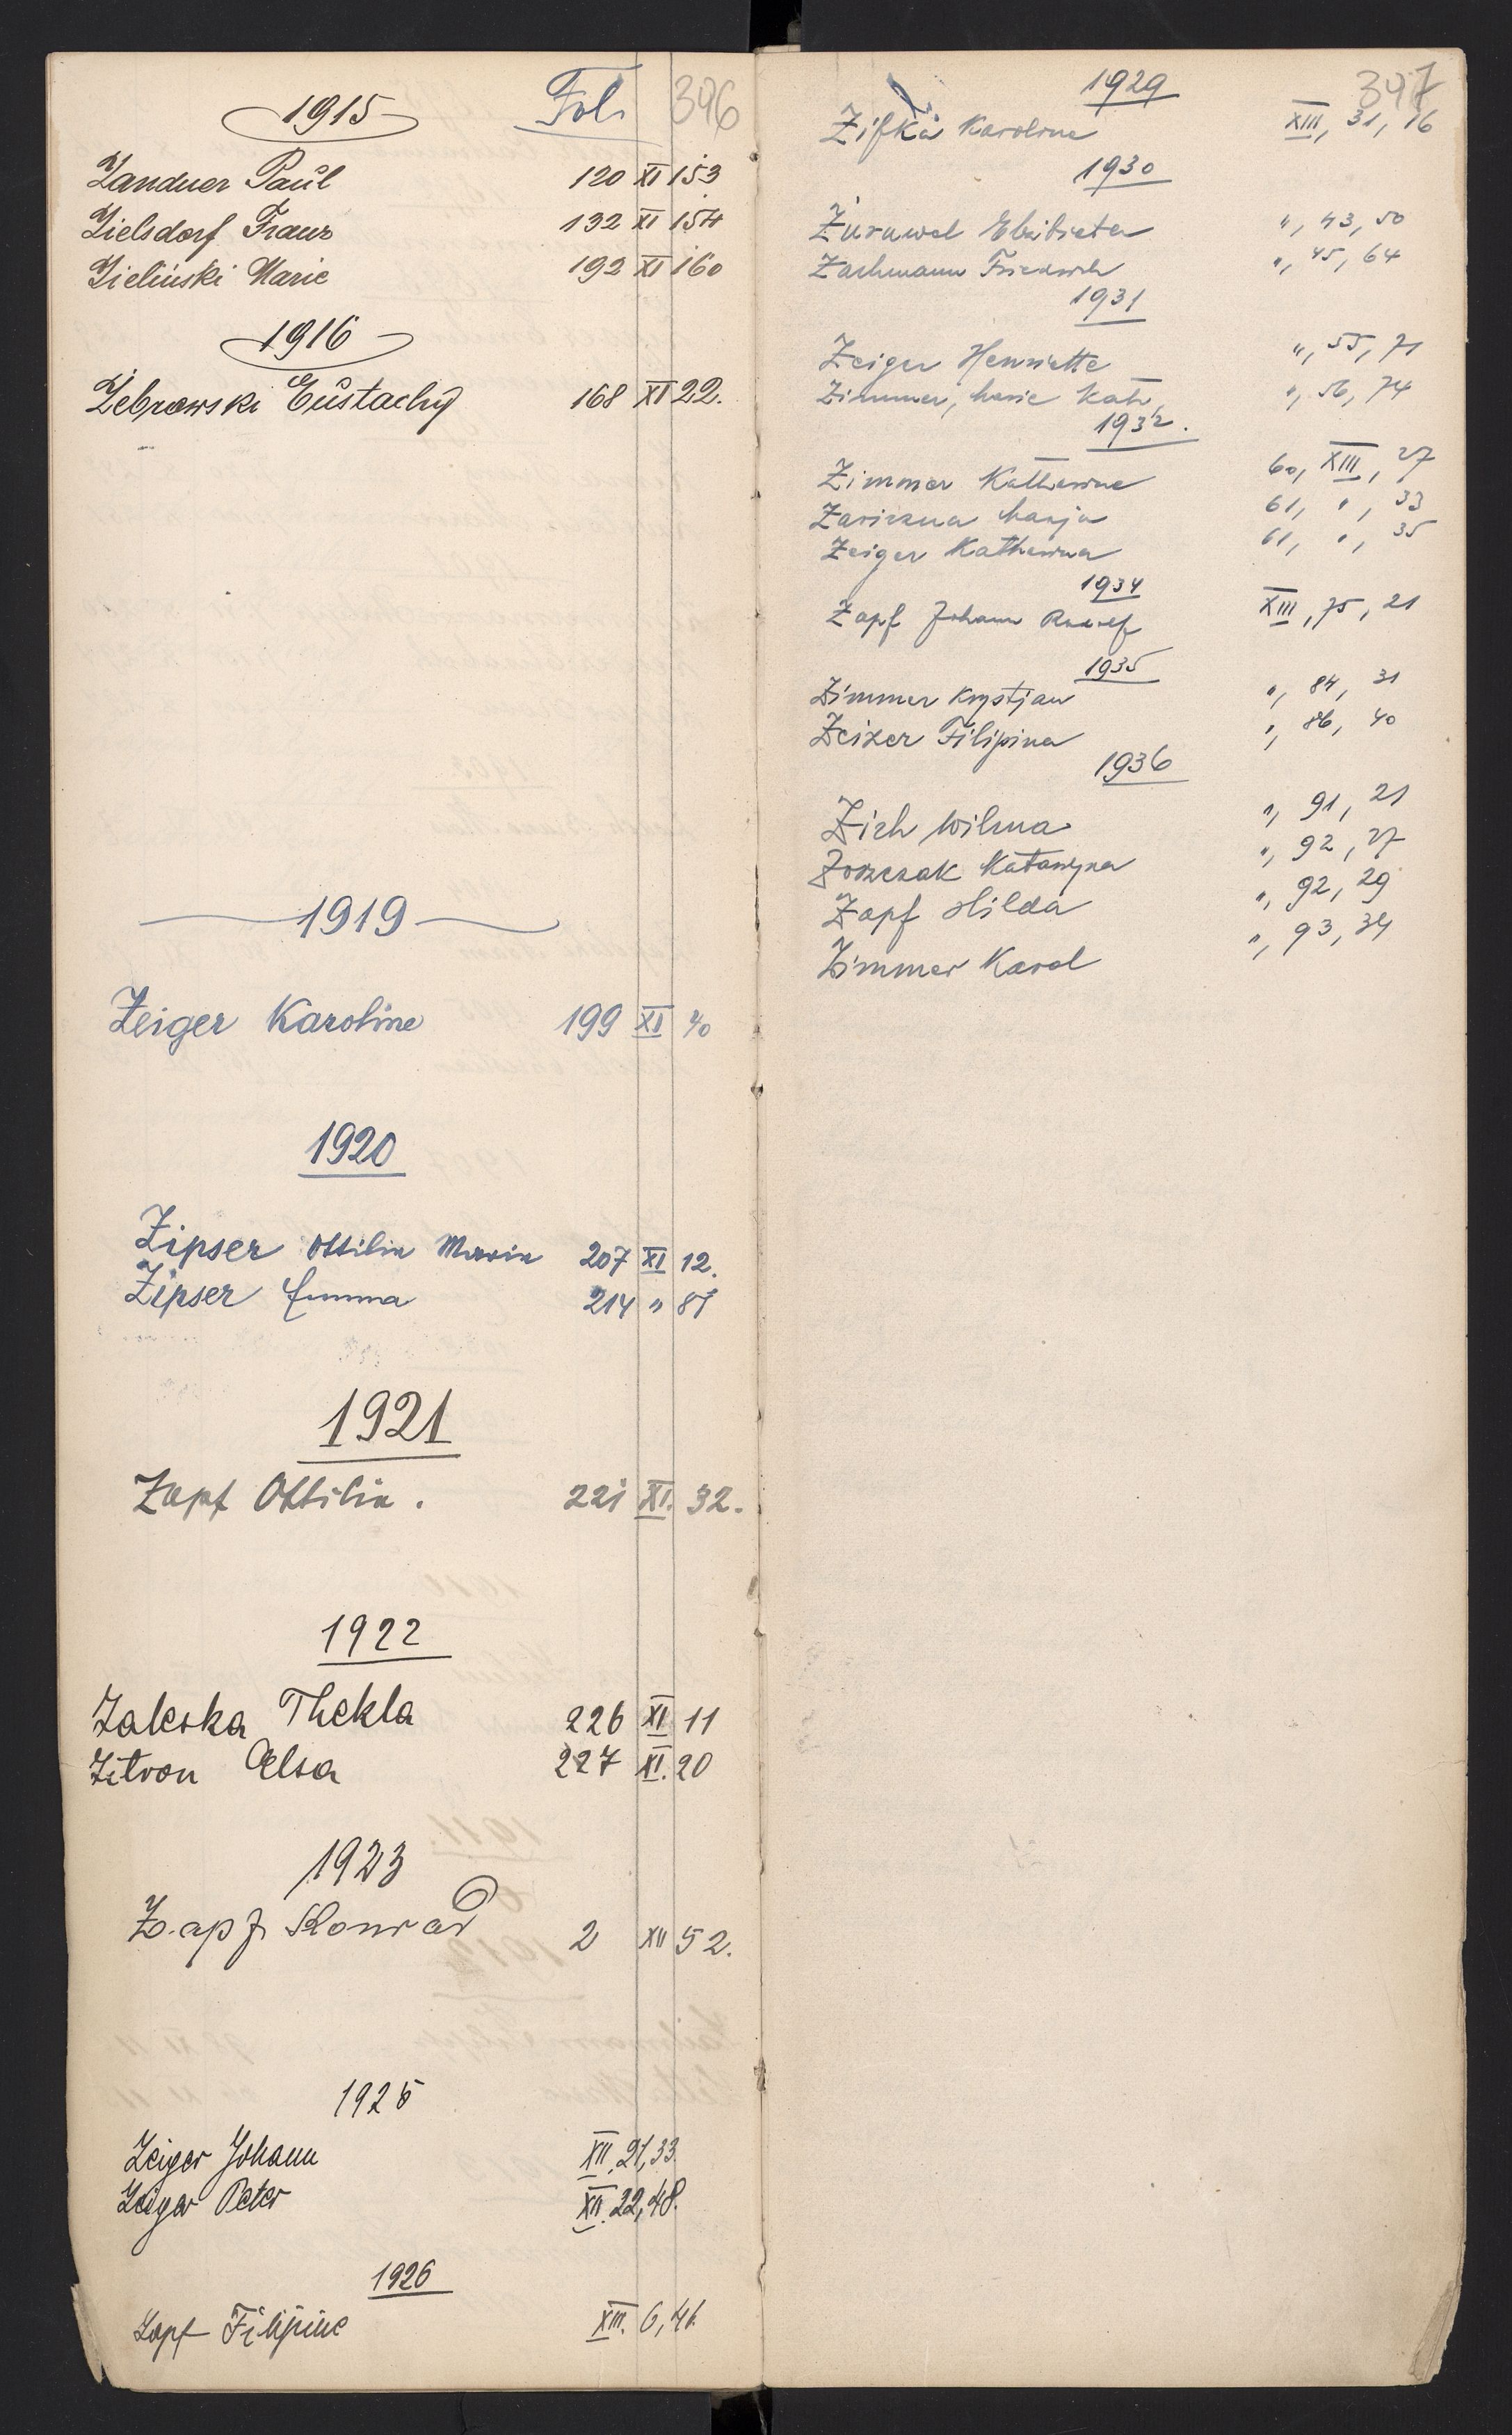 1915 Fol. 396
Zanduer Paul 120 XI 153
Zielsdorf Franz 132 XI 154
Zieliński Marie 192 XI 160
1916
Żebrowski Eustachy 168 XI 22.
1919
Zeiger Karoline 199 XI 40
1920
Zipser Ottilia Maria 207 XI 12.
Zipser Emma 214 " 87
1921
Zapf Ottilia. 221 XI. 32.
1922
Zaleska Thekla 226 XI 11
Zitron Elsa 227 XI. 20
1923
Zapf Konrad 2 XII 52.
1925
Zeiger Johann XII. 21, 33.
Zeiger Peter XII. 22, 48.
1926
Zapf Filipine XIII. 6, 41.
1929 397
Zifka Karoline XIII, 31, 16
1930
Żurawel Elżbieta ", 43, 50
Zachmann Friedrich ", 45, 64
1931
Zeiger Henriette ", 55, 71
Zimmer, Marie Kath. ", 56, 74
1932.
Zimmer Katherine 60, XIII, 27
Marja 61, ", 33
Zeiger Katharina 61, ", 35
1934
Zapf Johann Rudolf XIII, 75, 21
1935
Zimmer Krystjan ", 84, 31
Filipina ", 86, 40
1936
Zich Wilma ", 91, 21
Katarzyna ", 92, 27
Zapf Hilda ", 92, 29
Zimmer Karol ", 93, 34